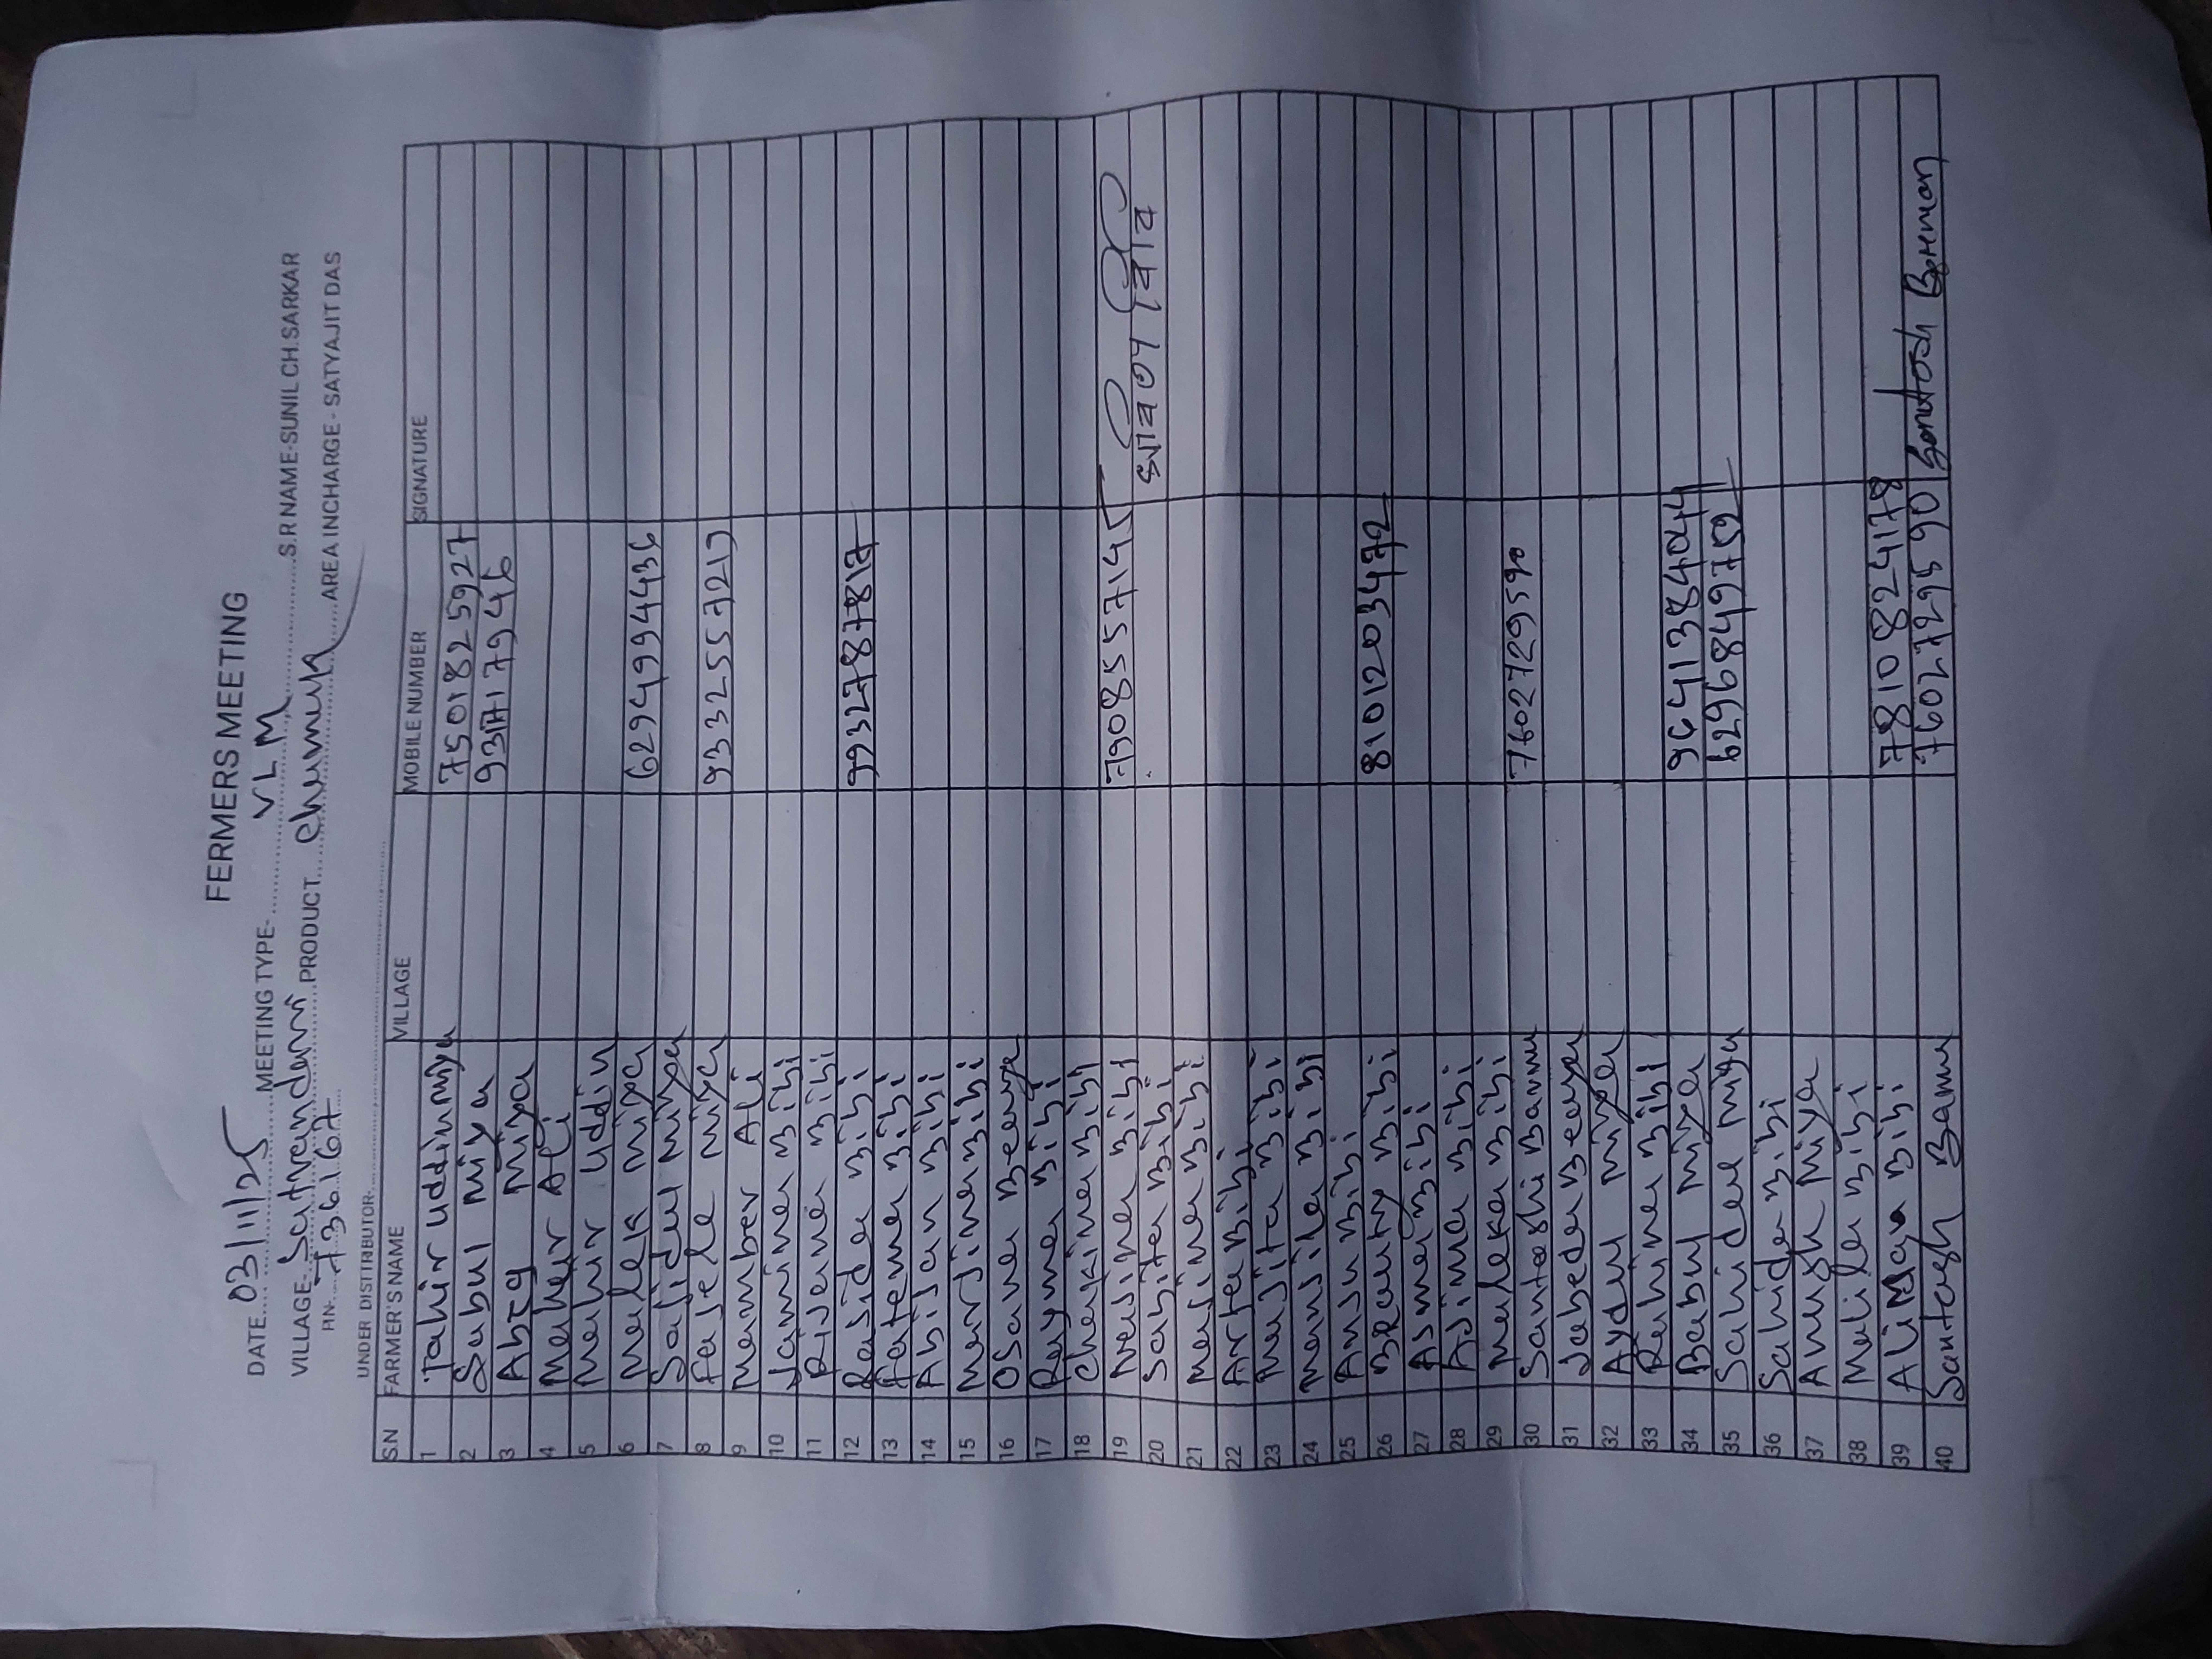 FERMERS MEETING
DATE 03/11/25 MEETING TYPE- VLM S.R NAME-SUNIL CH.SARKAR
VILLAGE- PRODUCT AREA INCHARGE - SATYAJIT DAS
PIN- 736167
UNDER DISTTRIBUTOR-
S.N FARMER'S NAME VILLAGE MOBILE NUMBER SIGNATURE
1 Tahir uddin miya 7501825927
2 Sabul miya
3 miya
4 Maher Ali
5 Mahir uddin
6 Malek miya 6294994436
7 Safidul miya
8 Fasele miya 9332557219
9 Mamber Ali
10 Jamina Bibi
11 Risana Bibi
12 Rasida Bibi 9932787817
13 Fatema Bibi
14 Abisan Bibi
15 Marjina Bibi
16 Osana Beewya
17 Rayma Bibi
18 Chakina Bibi
19 Nasima Bibi 7908557145
20 Sabita Bibi
21 Marjina Bibi
22 Arta Bibi
23 Masita Bibi
24 Mansila Bibi
25 Ansu Bibi
26 Beauty Bibi 8101203472
27 Asma Bibi
28 Ajima Bibi
29 Maleka Bibi
30 Santoshi Barmn 7602729590
31 Jabeda Beewya
32 Aydul miya
33 Rahina Bibi
34 Babul miya 9641384044
35 Sahidul miya 6296849752
36 Sahida Bibi
37 Anush Miya
38 Malila Bibi
39 Alimaya Bibi 7810824178
40 Santosh Barmn 7602729590 Santosh Barman